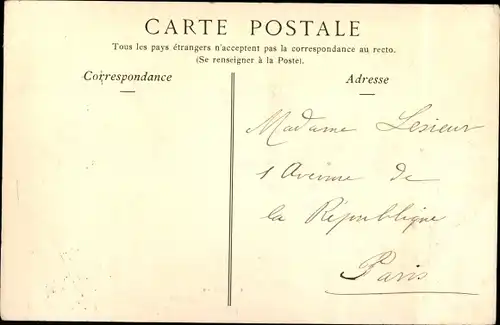 CARTE POSTALE
Tous les pays étrangers n'acceptent pas la correspondance au recto.
(Se renseigner à la Poste).
Correspondance
Adresse
Madame Lesieur
1 Avenue de
la République
Paris